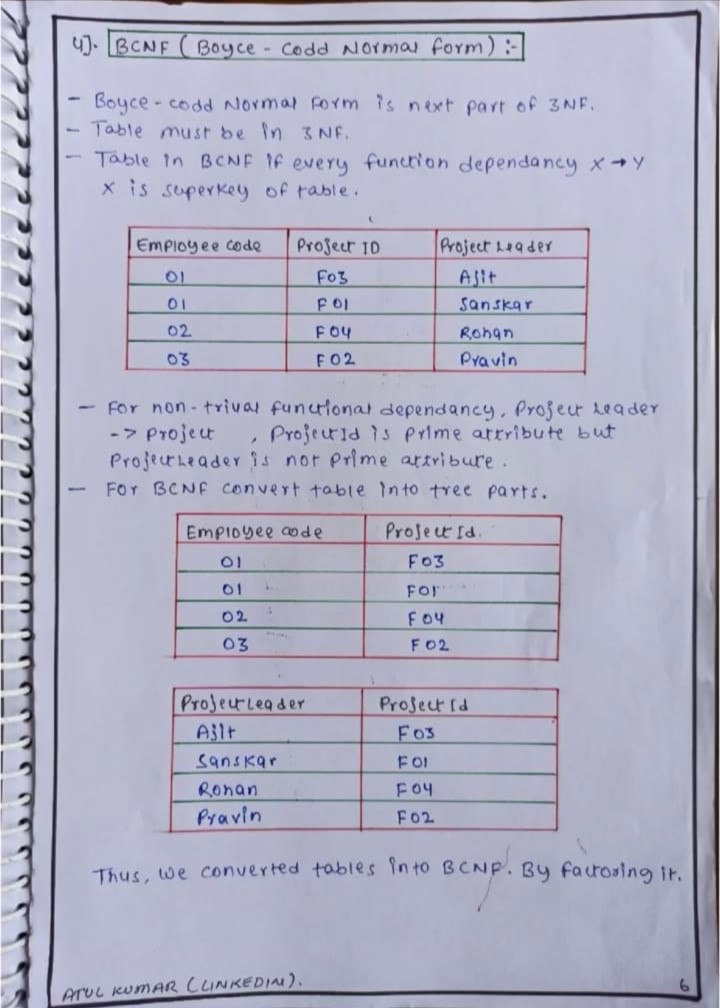 4]. BCNF ( Boyce - Codd Normal form ) :-
- Boyce - codd Normal Form is next part of 3NF.
- Table must be in 3NF.
- Table in BCNF if every function dependancy X → Y
X is superkey of table.
Employee code Project ID Project Leader
01 F03 Ajit
01 F01 Sanskar
02 F04 Rohan
03 F02 Pravin
- For non - trival functional dependancy, Project Leader
-> Project , ProjectId is prime attribute but
ProjectLeader is not prime attribute.
- For BCNF convert table into tree parts.
Employee code Project Id.
01 F03
01 F01
02 F04
03 F02
ProjectLeader Project Id
Ajit F03
Sanskar F01
Rohan F04
Pravin F02
Thus, we converted tables into BCNF. By factoring it.
ATUL KUMAR (LINKEDIN).
6